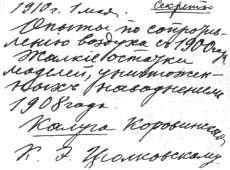 1910 г. 1 мая. Секретн
Опыты по сопротив-
лению воздуха с 1900 года
Жалкие остатки
моделей, уничтожен-
ных наводнением
1908 года.
Калуга Коровинская
К. Э. Циолковскому.